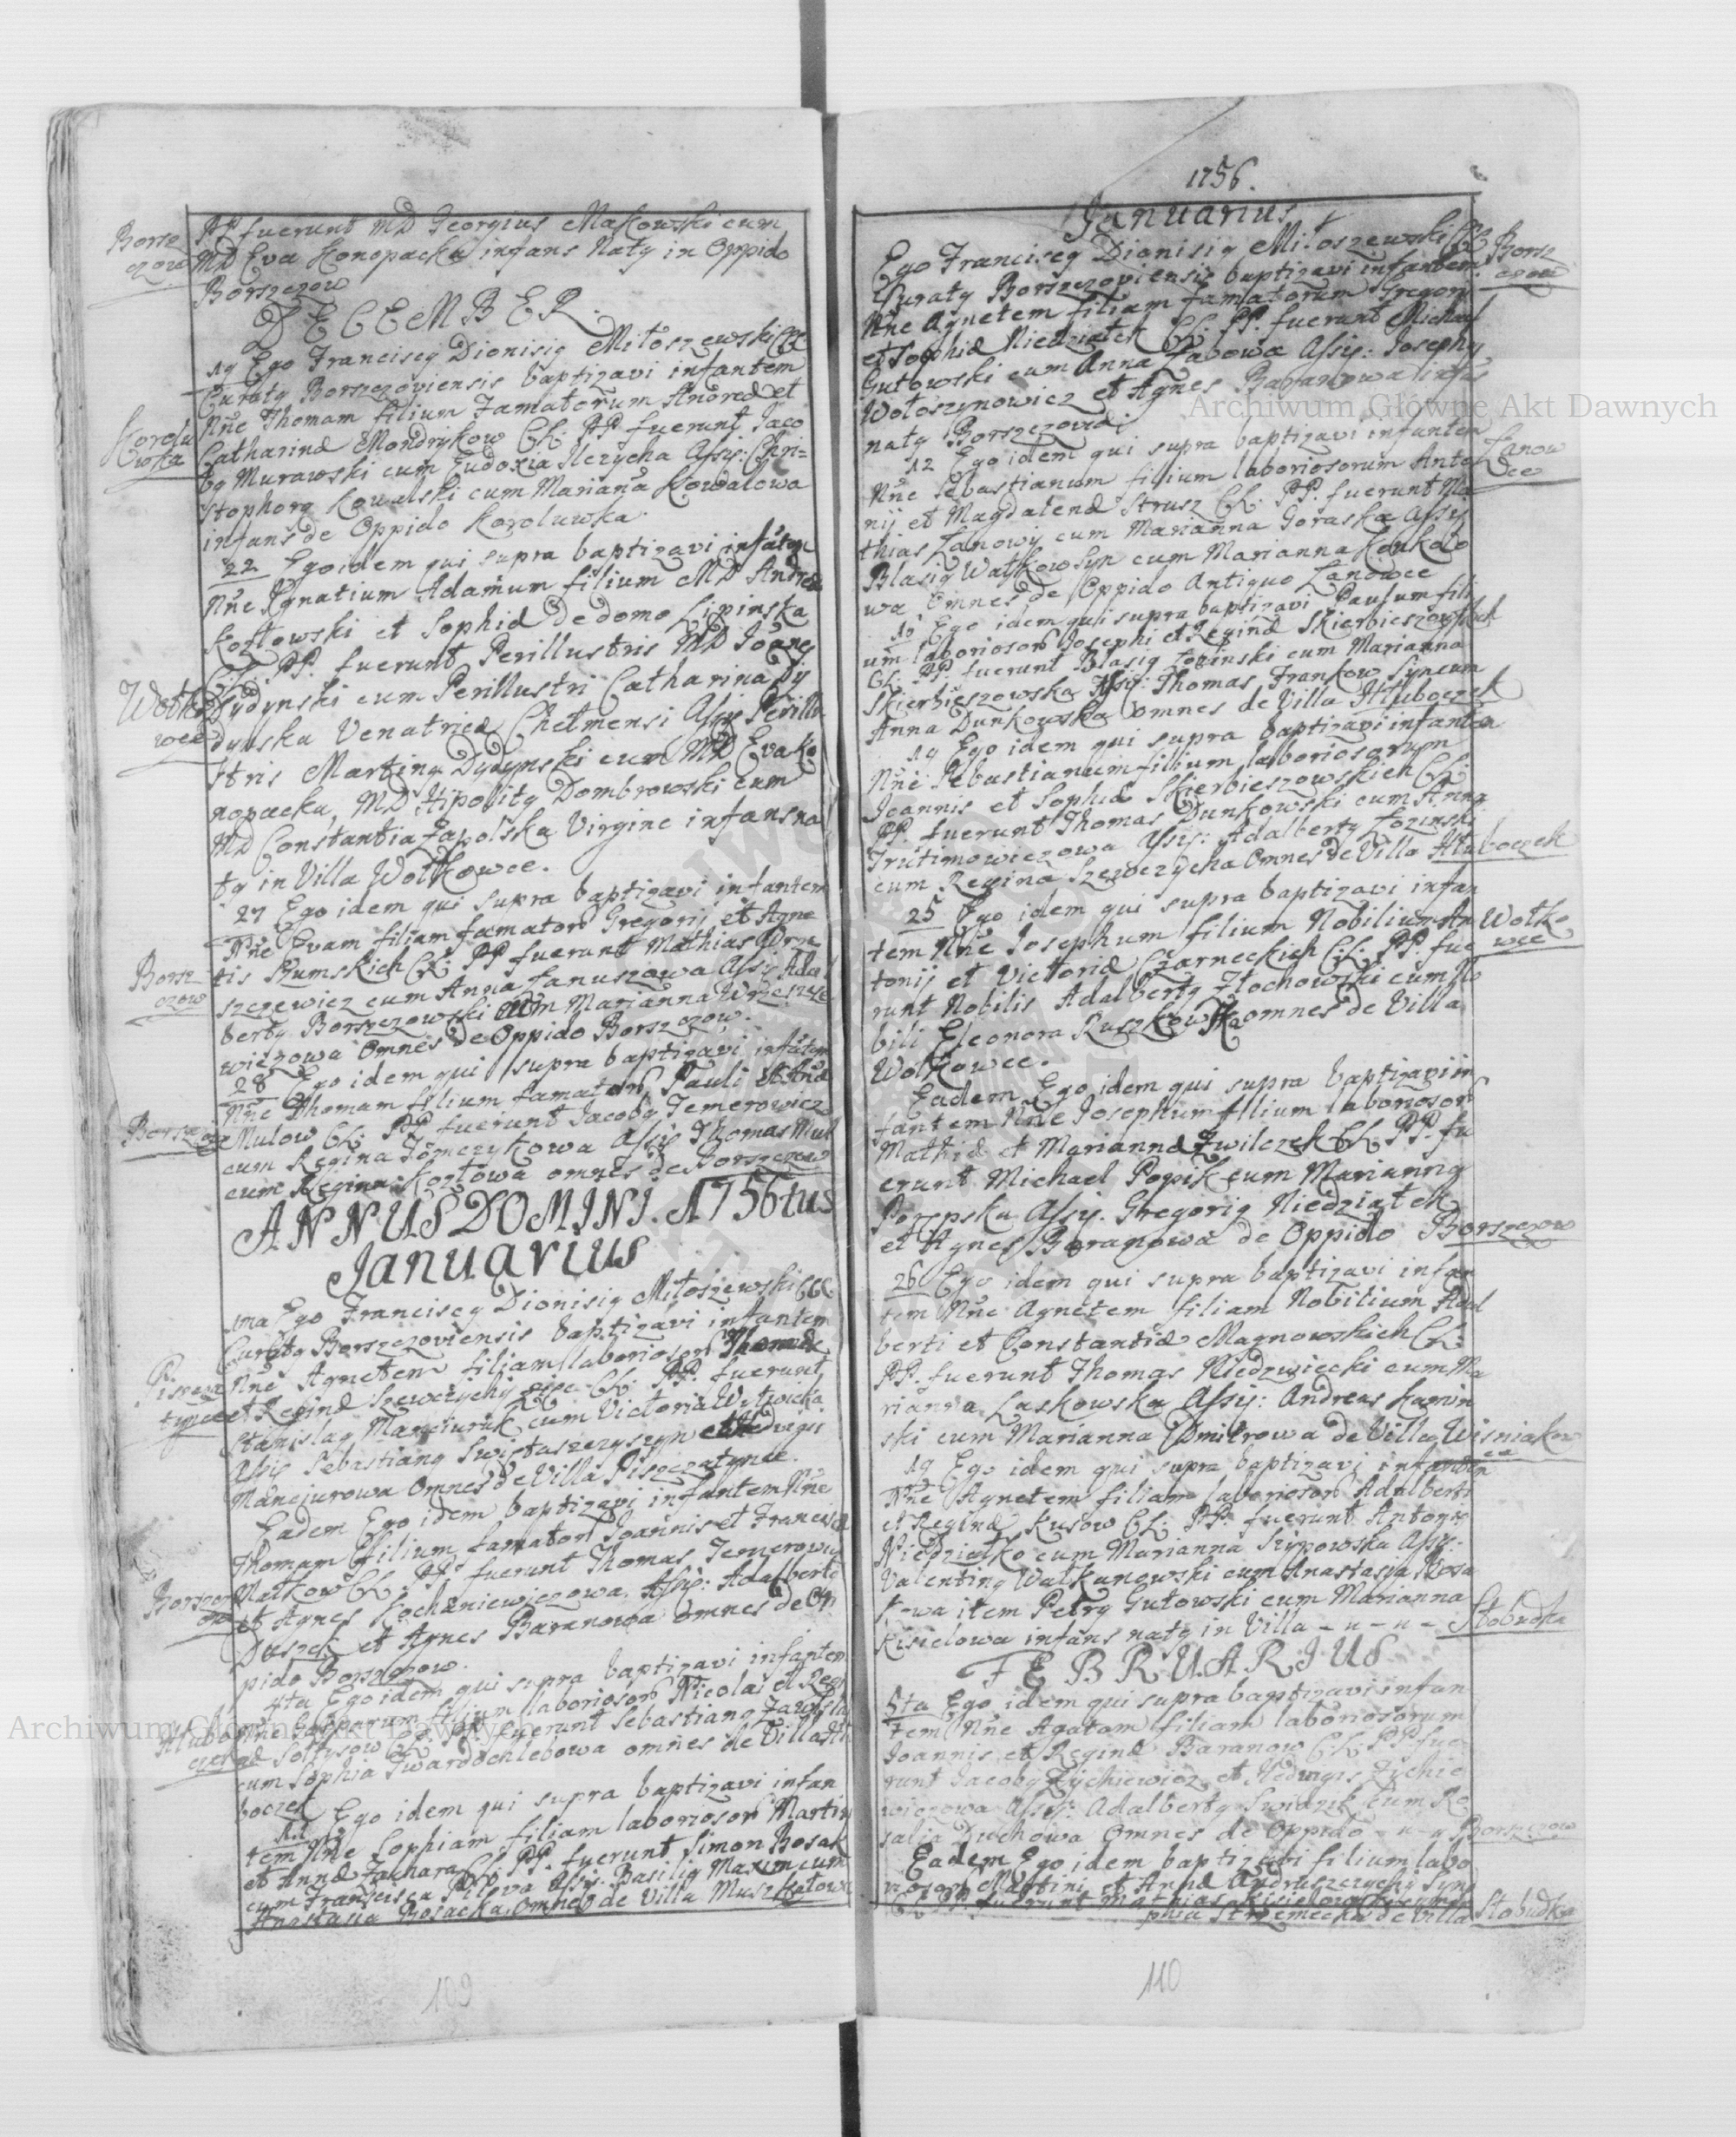 Borsz
czow
PP fuerunt MD Georgius Makowski cum
MD Eva Konopacka infans Natq in Oppido
Borszczow
DECEMBER.
19 Ego Franciscq Dionisiq Miłoszewski
Curatq Borszczoviensis baptizavi infantem
Nñe Thomam filium Famatorum Andreæ et
Korolu
wka
Catharinæ Mondrykow CL: PP. fuerunt Jaco
bq Murawski cum Eudoxia Ilczycha Assis: Chri=
stophorq Kowalski cum Mariana Kowalowa
infans de Oppido Korolowka.
22 Ego idem qui supra baptizavi infãtem
Nñe Ignatium Adamum filium MD Andreæ
Kozłowski et Sophiæ de domo Lipinska
CL: PP. fuerunt Perillustris MD Joañes
Wołko
wce
Dydynski cum Perillustri Catharina Dy
dynska Venatrice Chełmensi Assis Perillu
stris Martinq Dydynski cum MD Eva Ko
nopacka, MD Hipolitq Dombrowski cum
MD Constantia Zapolska Virgine infans na
tq in Villa Wołkowce.
27 Ego idem qui supra baptizavi infantem
Nñe Evam filiam famator Gregorij et Agne
Borsz
czow
tis Rumskich CL: PP fuerunt Mathias Wrze
szczewicz cum Anna Januszowa Assis Adal
bertq Borszczowski cum Marianna Wrzeszcze
wiczowa Omnes de Oppido Borszczow.
28 Ego idem qui supra baptizavi infãtem
Nñe Thomam filium famator Pauli et Añæ
Borszczow
Mulow CL: PP fuerunt Jacobq Temerowicz
cum Regina Tomczykowa Assis Thomas Mul
cum Regina Kozłowa omnes de Borszczow
ANNUS DOMINI. 1756tus
Januarius
1ma Ego Franciscq Dionisiq Miłoszewski
Curatq Borszczoviensis baptizavi infantem
Nñe Agnetem filiam laborioson Thomæ
Piszcza
tynce
et Reginæ Szewczychy CL: PP. fuerunt
Stanislaq Manciuruk cum Victoria Witwicka
Assis Sebastianq Swistaszczyszyn et Hedvigis
Manciurowa Omnes de Villa Piszczatynce.
Eadem Ego idem baptizavi infantem Nñe
Thomam filium famator Joannis et Francisca
Borszcz
ow
Matkow CL: PP fuerunt Thomas Temerowicz
et Agnes Kochaniewiczowa. Assis: Adalberte
Duszek et Agnes Baranowa omnes de Op
pido Borszczow.
4ta Ego idem qui supra baptizavi infantem
Hłubo
czek
Nñe Gasparum filium laborioson Nicolai et Regi
næ Sołtysow CL: PP. fuerunt Sebastianq
cum Sophia Twardochlebowa omnes de Villa Hłu
boczek
Ego idem qui supra baptizavi infan
tem Nñe Sophiam filiam laborioson Martin
et Annæ Zachara CL: PP. fuerunt Simon Rosak
cum Francisca Assis. Basiliq Maxim cum
Anastasia Rosacka, Omnes de Villa Muszkatowce
109
1756.
Januarius
Ego Franciscq Dionisiq Miłoszewski
Borsz
czow
Curatq Borszczoviensis baptizavi infantem
Nñe Agnetem filiam famatorum Gregorij
et Sophiæ Niedziałek CL: PP. fuerunt Michael
Gutowski cum Anna Zabowa Assis: Josephq
Wołoszynowicz et Agnes Baranowa infãs
natq Borszczoviæ
12 Ego idem qui supra baptizavi infantem
Lanow
ce
Nñe Sebastianum filium laboriosorum Anto
nij et Magdalenæ Strusz CL: PP. fuerunt Ma
thias Lanowij cum Marianna Goraska Assis
Blasiq Watkowsyn cum Marianna Konkolo
wa Omnes de Oppido Antiquo Lanowce
16 Ego idem qui supra baptizavi Paulum fili
um laborioson Josephi et Reginæ Skierbieszowskich
CL: PP. fuerunt Blasiq Łozinski cum Marianna
Skierbieszowska Assis: Thomas Frankow Syn cum
Anna Dunkowska Omnes de Villa Hłuboczek
19 Ego idem qui supra baptizavi infantem
Nñe Sebastianum filium laboriosorum
Joannis et Sophiæ Skierbieszowskich CL:
PP. fuerunt Thomas Dunkowski cum Anna
Trutimowiczowa Assis: Adalbertq Łozinski
cum Regina Szewczycha Omnes de Villa Hłuboczek
25 Ego idem qui supra baptizavi infan
tem Nñe Josephum filium Nobilium An
Wołko
wce
tonij et Victoriæ Czarneckich CL: PP. fue
runt Nobilis Adalbertq Złochowski cum No
bili Eleonora Ruszkowska omnes de Villa
Wołkowce.
Eadem Ego idem qui supra baptizavi in
fantem Nñe Josephum filium laborioson
Mathiæ et Mariannæ Zwilczek CL: PP. fu
erunt Michael Popik cum Marianna
Porepska Assis. Gregoriq Niedziałek
et Agnes Baranowa de Oppido Borszczow
26 Ego idem qui supra baptizavi infan
tem Nñe Agnetem filiam Nobilium Adal
berti et Constantiæ Magnowskich CL:
PP. fuerunt Thomas Niedzwiecki cum Ma
rianna Laskowska Assis: Andreas Kamin
ski cum Marianna Dmitrowa de Villa Wisniakow
ce
19 Ego idem qui supra baptizavi infantem
Nñe Agnetem filiam laborioson Adalberti
et Reginæ Kusow CL: PP. fuerunt Antoniq
Niedziałko cum Marianna Assis:
Valentinq Watkunowski cum Anastasia Rosa
kowa item Petrq Gutowski cum Marianna
Kisielowa infans natq in Villa - u - u - Słobudka
FEBRUARIUS
5ta Ego idem qui supra baptizavi infan
tem Nñe Agatam filiam laboriosorum
Joannis et Reginæ Baranow CL: PP fue
runt Jacobq Zychiewicz et Hedvigis Zychie
wiczowa Assis: Adalbertq Swiarzk cum Ro
salia Duchowa Omnes de Oppido - u - u Borszczow
Eadem Ego idem baptizavi filium labo
rioson Martini et Annæ Andruszczychy Syna
CL: PP. fuerunt Mathias
phia Strzemecka de Villa Słobudka
110
Archiwum Główne Akt Dawnych
Archiwum Główne Akt Dawnych